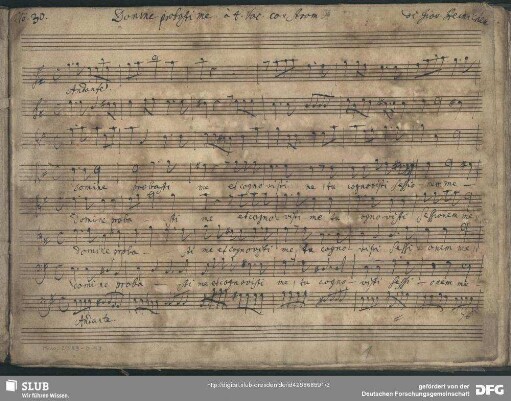 No 30. Domine probasti me à 4. Voc. con strom.
Andante
Domine probasti me et cognovisti me tu cognovisti sessionem me
Domine proba sti me et cognovisti me tu cognovisti sessionem me
Domine proba sti me et cognovisti me tu cognovisti sessi onem me
Domine proba sti me et cognovisti me tu cognovisti sessi onem me
Andante
SLUB
Wir führen Wissen.
gefördert von der
Deutschen Forschungsgemeinschaft
DFG